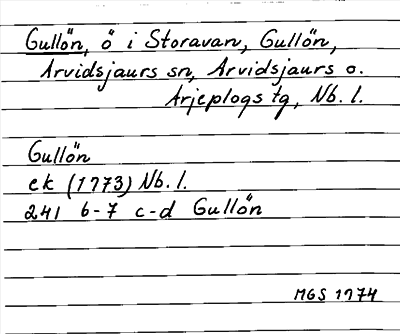 Gullön, ö i Storavan, Gullön,
Arvidsjaurs sn, Arvidsjaurs o.
Arjeplogs tg, Nb. l.
Gullön
ek (1973) Nb. l.
241 6-7 c-d Gullön
MGS 1974